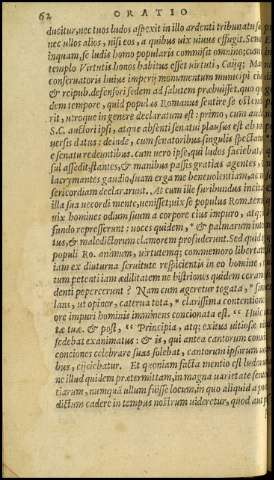 62 ORATIO
ducitur, nec tuos ludos aspexit in illo ardenti tribunatu suo,
nec ullos alios, nisi eos, a quibus uix uiuus effugit. Sensit
inquam, se ludis homo popularis commisit omnino; cum in
templo Virtutis honos habitus esset uirtuti, Caijq; Marij
conseruatoris huius imperij monumentum municipi eius,
& reip. defensori sedem ad salutem præbuisset. quo quidem
dem tempore, quid populus Romanus sentire se ostenderit,
utroque in genere declaratum est: primo, cum audito
S.C. auctori ipsi, atque absenti senatui plausus est ab uniuersis
datus: deinde, cum senatoribus singulis spectatum
e senatu redeuntibus. cum uero ipse, qui ludos faciebat, consul
assedit: stantes, & manibus passis gratias agentes, &
lacrymantes gaudio, suam erga me beneuolentiam, ac misericordiam
declararunt. At cum ille furibundus incitata
illa sua uecordi mente, uenisset: uix se populus Rom. tenuit,
uix homines odium suum a corpore eius impuro, atque
fando represserunt: uoces quidem, * & palmarum intentus,
& maledictorum clamorem profuderunt. Sed quid ego
populi Ro. animum, uirtutemq; commemoro libertatem
iam ex diuturna seruitute respicientis in eo homine, cui
tum petenti iam ædilitatem ne histriones quidem coram sedenti
pepercerunt? Nam cum ageretur togata, * simulans,
ut opinor, caterua tota, * clarissima contentione
ore impuri hominis imminens concionata est. “ Huic uitæ
tuæ. & post, “ Principia, atq; exitus uitiosæ uitæ.
sedebat exanimatus: & is, qui antea cantorum conuicio
conciones celebrare suas solebat, cantorum ipsorum uocibus,
eijciebatur. Et quoniam facta mentio est ludorum,
ne illud quidem prætermittam, in magna uarietate sententiarum,
numquã ullum fuisse locum, in quo aliquid a poeta
dictum cadere in tempus nostrum uideretur, quod aut